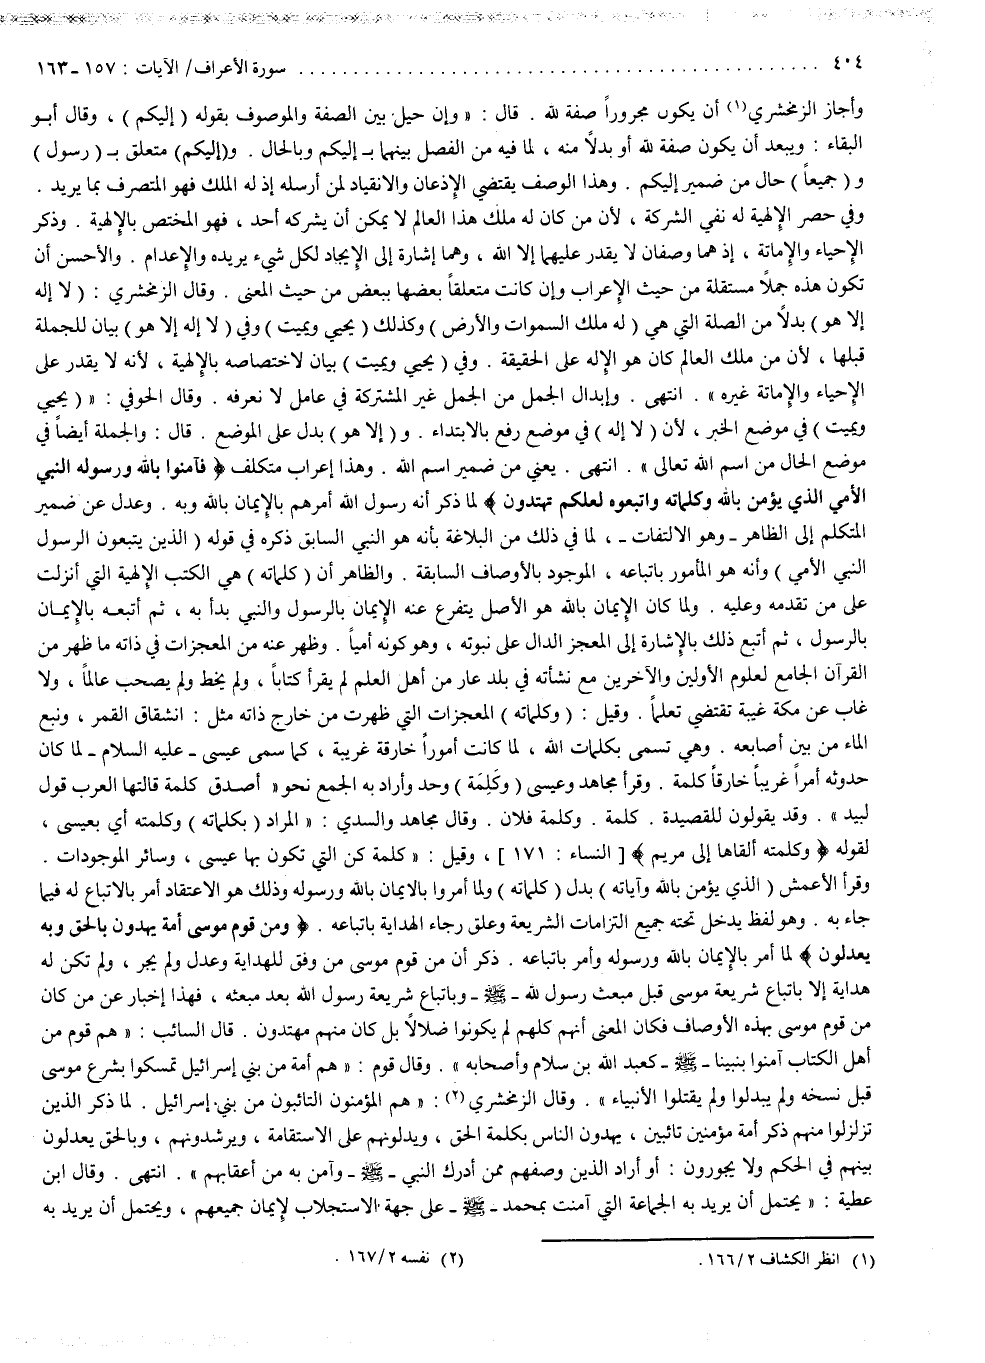 ٤٠٤ ........................................ سورة الأعراف/ الآيات : ١٥٧ ـ ١٦٣
وأجاز الزمخشري(١) أن يكون مجروراً صفة لله . قال : « وإن حيل بين الصفة والموصوف بقوله ( إليكم ) ، وقال أبـو
البقاء : ويبعد أن يكون صفة لله أو بدلًا منه ، لما فيه من الفصل بينهما بـ إليكم وبالحال . و(إليكم) متعلق بـ ( رسول )
و ( جميعاً ) حال من ضمير إليكم . وهذا الوصف يقتضي الإذعان والانقياد لمن أرسله إذ له الملك فهو المتصرف بما يريد .
وفي حصر الإلهية له نفي الشركة ، لأن من كان له ملك هذا العالم لا يمكن أن يشركه أحد ، فهو المختص بالإلهية . وذكر
الإحياء والإماتة ، إذ هما وصفان لا يقدر عليهما إلا الله ، وهما إشارة إلى الإيجاد لكل شيء يريده والإعدام . والأحسن أن
تكون هذه جملًا مستقلة من حيث الإعراب وإن كانت متعلقاً بعضها ببعض من حيث المعنى . وقال الزمخشري : ( لا إله
إلا هو ) بدلًا من الصلة التي هي ( له ملك السموات والأرض ) وكذلك ( يحيي ويميت ) وفي ( لا إله إلا هو ) بيان للجملة
قبلها ، لأن من ملك العالم كان هو الإله على الحقيقة . وفي ( يحيي ويميت ) بيان لاختصاصه بالإلهية ، لأنه لا يقدر على
الإحياء والإماتة غيره » . انتهى . وإبدال الجمل من الجمل غير المشتركة في عامل لا نعرفه . وقال الحوفي : « ( يحيي
ويميت ) في موضع الخبر ، لأن ( لا إله ) في موضع رفع بالابتداء . و ( إلا هو ) بدل على الموضع . قال : والجملة أيضاً في
موضع الحال من اسم الله تعالى » . انتهى . يعني من ضمير اسم الله . وهذا إعراب متكلف ﴿ فآمنوا بالله ورسوله النبي
الأمي الذي يؤمن بالله وكلماته واتبعوه لعلكم تهتدون ﴾ لما ذكر أنه رسول الله أمرهم بالإيمان بالله وبه . وعدل عن ضمير
المتكلم إلى الظاهر ـ وهو الالتفات ـ ، لما في ذلك من البلاغة بأنه هو النبي السابق ذكره في قوله ( الذين يتبعون الرسول
النبي الأمي ) وأنه هو المأمور باتباعه ، الموجود بالأوصاف السابقة . والظاهر أن ( كلماته ) هي الكتب الإلهية التي أنزلت
على من تقدمه وعليه . ولما كان الإيمان بالله هو الأصل يتفرع عنه الإيمان بالرسول والنبي بدأ به ، ثم أتبعـه بالإيمـان
بالرسول ، ثم أتبع ذلك بالإشارة إلى المعجز الدال على نبوته ، وهو كونه أمياً . وظهر عنه من المعجزات في ذاته ما ظهر من
القرآن الجامع لعلوم الأولين والآخرين مع نشأته في بلد عار من أهل العلم لم يقرأ كتاباً ، ولم يخط ولم يصحب عالماً ، ولا
غاب عن مكة غيبة تقتضي تعلماً . وقيل : ( وكلماته ) المعجزات التي ظهرت من خارج ذاته مثل : انشقاق القمر ، ونبع
الماء من بين أصابعه . وهي تسمى بكلمات الله ، لما كانت أموراً خارقة غريبة ، كما سمى عيسى ـ عليه السلام ـ لما كان
حدوثه أمراً غريباً خارقاً كلمة . وقرأ مجاهد وعيسى ( وكَلِمَة ) وحد وأراد به الجمع نحو « أصـدق كلمة قالتها العرب قول
لبيد » . وقد يقولون للقصيدة . كلمة . وكلمة فلان . وقال مجاهد والسدي : « المراد ( بكلماته ) وكلمته أي بعيسى ،
لقوله ﴿ وكلمته ألقاها إلى مريم ﴾ [ النساء : ١٧١ ] ، وقيل : « كلمة كن التي تكون بها عيسى ، وسائر الموجودات .
وقرأ الأعمش ( الذي يؤمن بالله وآياته ) بدل ( كلماته ) ولما أمروا بالايمان بالله ورسوله وذلك هو الاعتقاد أمر بالاتباع له فيما
جاء به . وهو لفظ يدخل تحته جميع التزامات الشريعة وعلق رجاء الهداية باتباعه . ﴿ ومن قوم موسى أمة يهدون بالحق وبه
يعدلون ﴾ لما أمر بالإيمان بالله ورسوله وأمر باتباعه . ذكر أن من قوم موسى من وفق للهداية وعدل ولم يجر ، ولم تكن له
هداية إلا باتباع شريعة موسى قبل مبعث رسول لله ـ ﷺ ـ وباتباع شريعة رسول الله بعد مبعثه ، فهذا إخبار عن من كان
من قوم موسى بهذه الأوصاف فكان المعنى أنهم كلهم لم يكونوا ضلالًا بل كان منهم مهتدون . قال السائب : « هم قوم من
أهل الكتاب آمنوا بنبينا ـ ﷺ ـ كعبد الله بن سلام وأصحابه » . وقال قوم : « هم أمة من بني إسرائيل تمسكوا بشرع موسى
قبل نسخه ولم يبدلوا ولم يقتلوا الأنبياء » . وقال الزمخشري(٢) : « هم المؤمنون التائبون من بني إسرائيل . لما ذكر الذين
تزلزلوا منهم ذكر أمة مؤمنين تائبين ، يهدون الناس بكلمة الحق ، ويدلونهم على الاستقامة ، ويرشدونهم ، وبالحق يعدلون
بينهم في الحكم ولا يجورون : أو أراد الذين وصفهم ممن أدرك النبي ـ ﷺ ـ وآمن به من أعقابهم » . انتهى . وقال ابن
عطية : « يحتمل أن يريد به الجماعة التي آمنت بمحمد ـ ﷺ ـ على جهة الاستجلاب لإيمان جميعهم ، ويحتمل أن يريد به
(١) انظر الكشاف ٢/ ١٦٦ . (٢) نفسه ٢/ ١٦٧ .